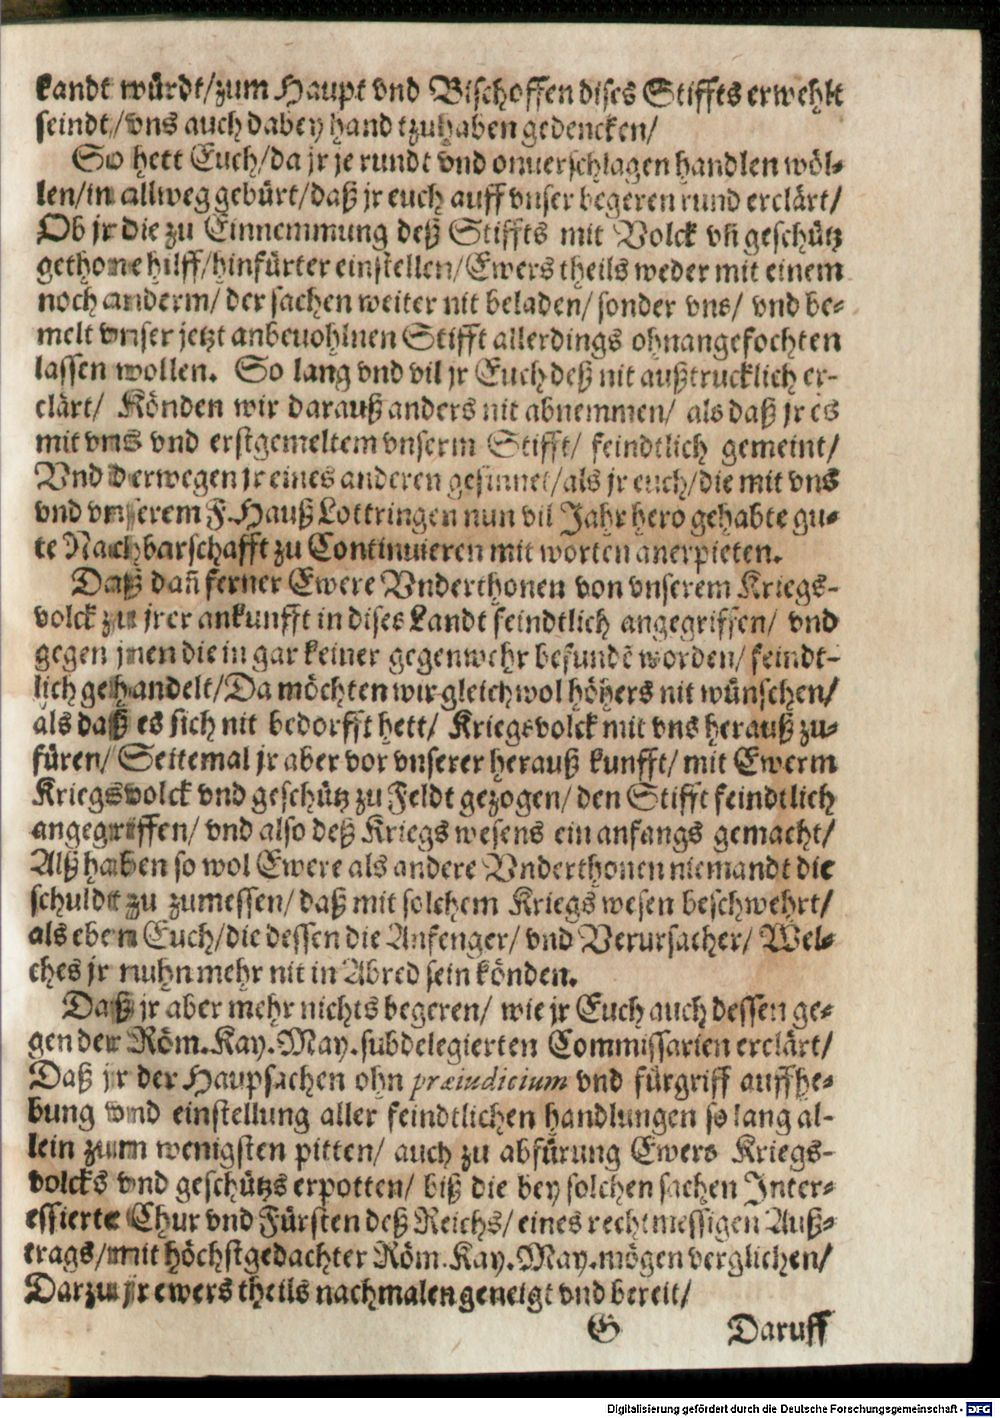 kandt würdt/zum Haupt vnd Bischoffen dises Stiffts erwehlt
seindt/vns auch dabey handtzuhaben gedencken/
So hett Euch/da jr je rundt vnd onuerschlagen handlen wöl-
len/in allweg gebürt/daß jr euch auff vnser begeren rund erclärt/
Ob jr die zu Einnemmung deß Stiffts mit Volck vñ geschütz
gethone hilff/hinfürter einstellen/Ewers theils weder mit einem
noch anderm/ der sachen weiter nit beladen/ sonder vns/ vnd be-
melt vnser jetzt anbeuohlnen Stifft allerdings ohnangefochten
lassen wollen. So lang vnd vil jr Euch deß nit außtrucklich er-
clärt/ Könden wir darauß anders nit abnemmen/ als daß jr es
mit vns vnd erstgemeltem vnserm Stifft/ feindtlich gemeint/
Vnd derwegen jr eines anderen gesinnet/als jr euch/die mit vns
vnd vnserem F. Hauß Lottringen nun vil Jahr hero gehabte gu-
te Nachbarschafft zu Continuieren mit worten anerpieten.
Daß dañ ferner Ewere Vnderthonen von vnserem Kriegs-
volck zu jrer ankunfft in dises Landt feindtlich angegriffen/ vnd
gegen jnen die in gar keiner gegenwehr befundẽ worden/ feindt-
lich gehandelt/Da möchten wir gleichwol höhers nit wünschen/
als daß es sich nit bedorfft hett/ Kriegsvolck mit vns herauß zu-
füren/ Seitemal jr aber vor vnserer herauß kunfft/ mit Ewerm
Kriegsvolck vnd geschütz zu Feldt gezogen/ den Stifft feindtlich
angegriffen/ vnd also deß Kriegs wesens ein anfangs gemacht/
Alß haben so wol Ewere als andere Vnderthonen niemandt die
schuldt zu zumessen/ daß mit solchem Kriegs wesen beschwehrt/
als eben Euch/die dessen die Anfenger/ vnd Verursacher/ Wel-
ches jr nuhn mehr nit in Abred sein könden.
Daß jr aber mehr nichts begeren/ wie jr Euch auch dessen ge-
gen der Röm. Kay. May. subdelegierten Commissarien erclärt/
Daß jr der Haupsachen ohn præiudicium vnd fürgriff auffhe-
bung vnd einstellung aller feindtlichen handlungen so lang al-
lein zum wenigsten pitten/ auch zu abfürung Ewers Kriegs-
volcks vnd geschützs erpotten/ biß die bey solchen sachen Inter-
essierte Chur vnd Fürsten deß Reichs/ eines rechtmessigen Auß-
trags/mit höchstgedachter Röm. Kay. May. mögen verglichen/
Darzu jr ewers theils nachmalen geneigt vnd bereit/
G Daruff
Digitalisierung gefördert durch die Deutsche Forschungsgemeinschaft - DFG